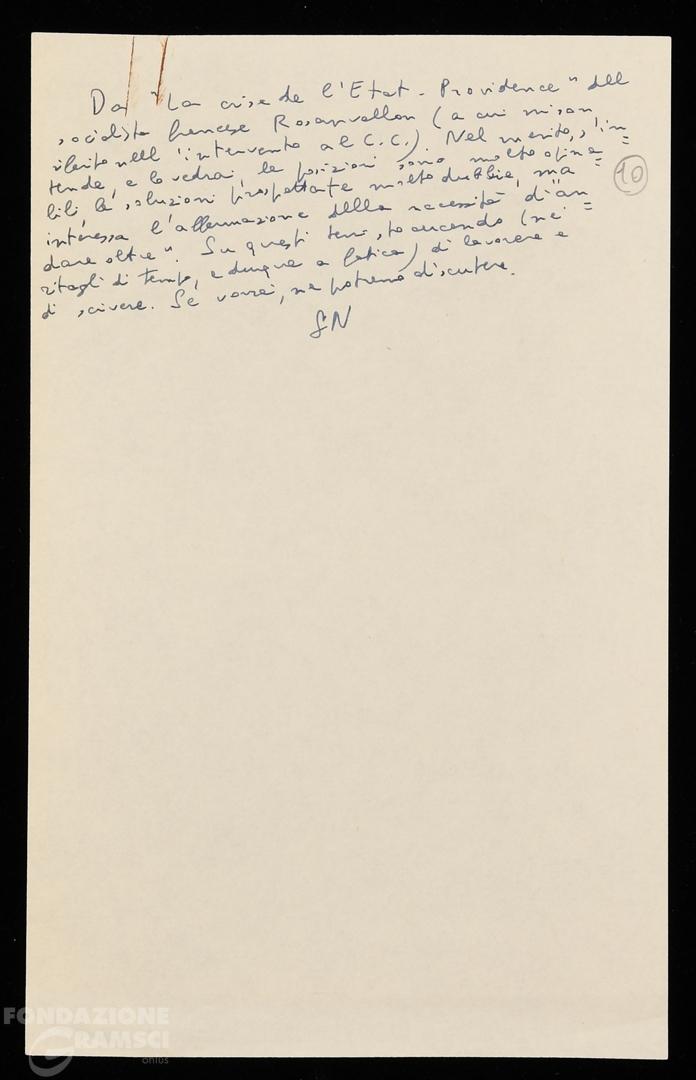 Da "La crise de l'Etat-Providence" del
socialista francese Rosanvallon (a cui mi son
riferito nell'intervento al C.C.). Nel merito, s'in=
tende, e lo vedrai, le posizioni sono molto opina=
bili, le soluzioni prospettate molto dubbie, ma
interessa l'affermazione della necessità di "an=
dare oltre". Su questi temi sto cercando (nei
ritagli di tempo, e dunque a fatica) di lavorare e
di scrivere. Se vorrai, ne potremo discutere.
GN
10
FONDAZIONE
GRAMSCI
onlus